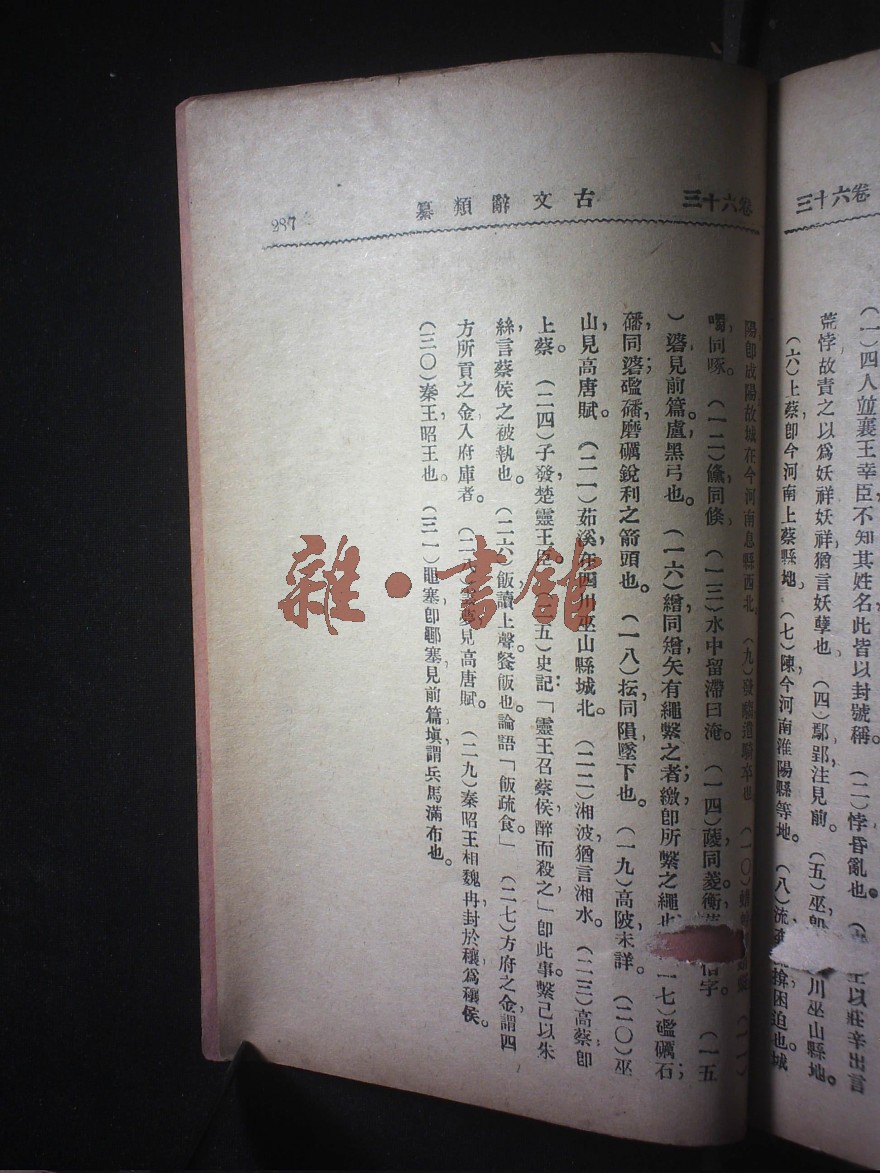 三十六卷
(一)四人並襄王幸臣不知其姓名此皆以封號稱。 (二)悖昏亂也。 王以莊辛出言
荒悖故責之以爲妖祥妖祥,猶言妖孽也 (四)鄢郢,注見前。 (五)巫 川巫山縣地。
(六)上蔡卽今河南上蔡縣地。 (七)陳今河南淮陽縣等地。 (八)流 揜困迫也城
三十六卷
古文辭類纂
287
陽卽成陽故城在今河南息縣西北。 (九)發 道騎卒也 (一〇) (一一)
噣同啄。 (一二)儵同倏 (一三)水中留滯曰淹。 (一四)蔆同菱衡 字。 (一五
)碆見前篇。盧黑弓也。 (一六)繒同矰矢有繩繫之者;繳卽所繫之繩也 一七)礛礪石;
磻同碆;礛磻,磨礪銳利之箭頭也。 (一八)抎同隕,墜下也。 (一九)高陂未詳。 (二〇)巫
山,見高唐賦。 (二一)茹溪,在四川巫山縣城北。 (二二)湘波猶言湘水。 (二三)高蔡卽
上蔡。 (二四)子發,楚靈王臣。 五)史記:「靈王召蔡侯,醉而殺之」卽此事。繫己以朱
絲言蔡侯之被執也。 (二六)飯讀上聲,餐飯也;論語「飯疏食。」 (二七)方府之金,謂四
方所貢之金,入府庫者。 (二八 夢見高唐賦。 (二九)秦昭王相魏冉封於穰,爲穰侯。
(三〇)秦王,昭王也。 (三一)黽塞,卽鄳塞見前篇塡,謂兵馬滿布也。
雜·書館